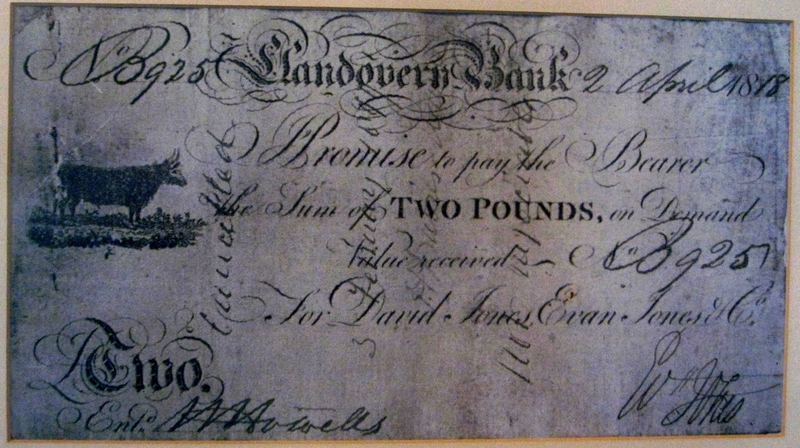 No B925 Llandovery Bank 2 April 1818
I Promise to pay the Bearer
the Sum of TWO POUNDS, on Demand
Value received No B925
For David Jones, Evan Jones & Co.
£Two.
Entd. Howells
Cancelled